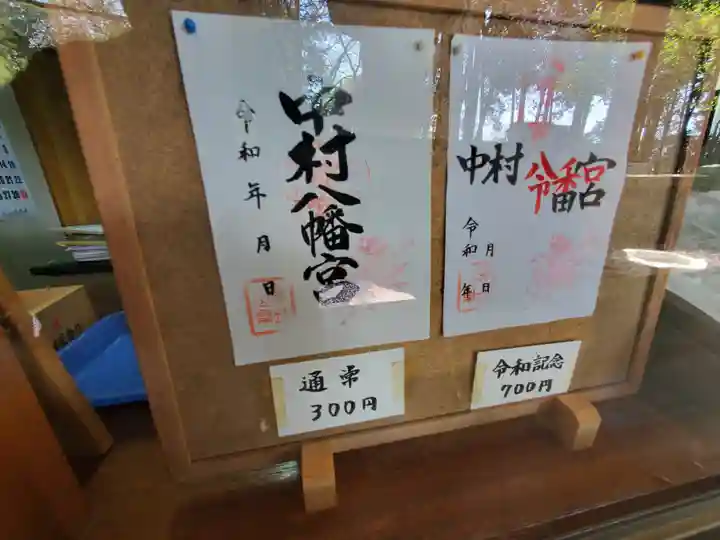 中村八幡宮
令和 年 月 日
中村 八幡宮
令和
令和 年 月 日
通常
300円
令和記念
700円